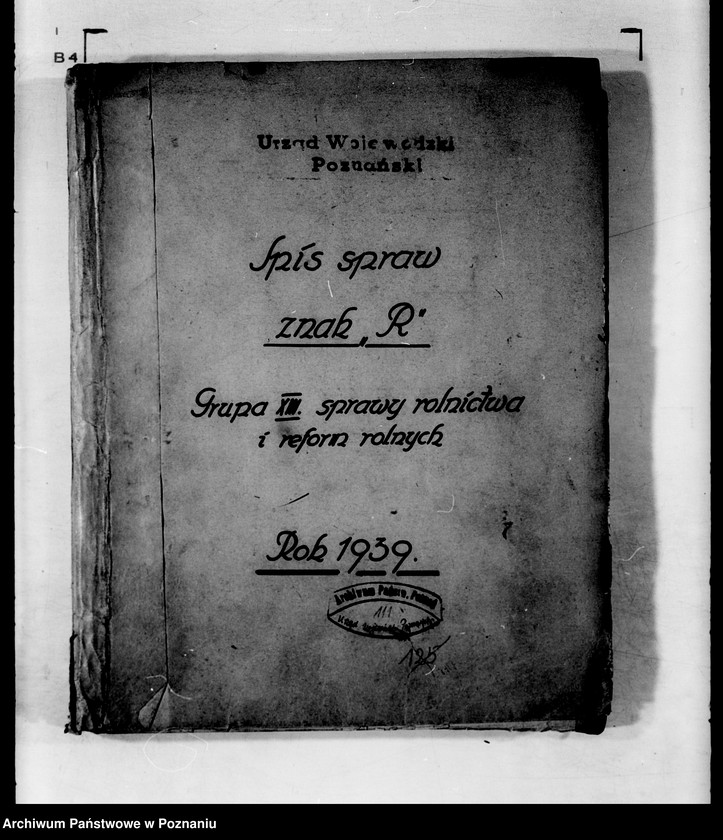 B4
Urząd Wojewódzki
Poznański
Spis spraw
znak „R"
Grupa XIII. sprawy rolnictwa
i reform rolnych
Rok 1939.
Archiwum Państw. Poznań
111
125
Archiwum Państwowe w Poznaniu